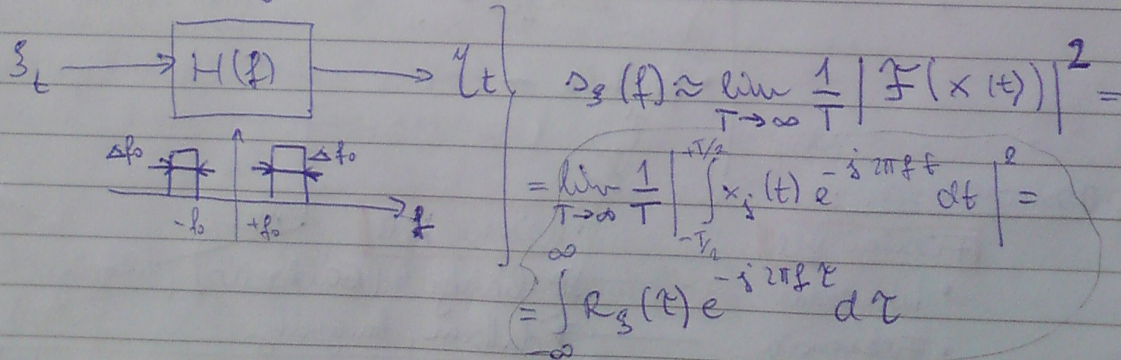 ξ_t → H(f) → η_t
Δf₀ Δf₀
-f₀ +f₀ f
s_ξ(f) ≈ lim_{T→∞} 1/T |F(x(t))|² =
= lim_{T→∞} 1/T |∫_{-T/2}^{+T/2} x_j(t) e^{-j2πft} dt|² =
= ∫_{-∞}^{∞} R_ξ(τ) e^{-j2πfτ} dτ